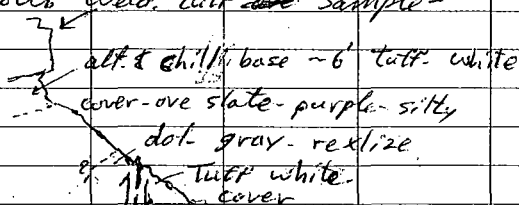 weld. tuff sample-
alt. & chill base ~6' tuff- white
cover-ove slate-purple-silty
dol- gray- rexlize
?
Tuff white-
cover